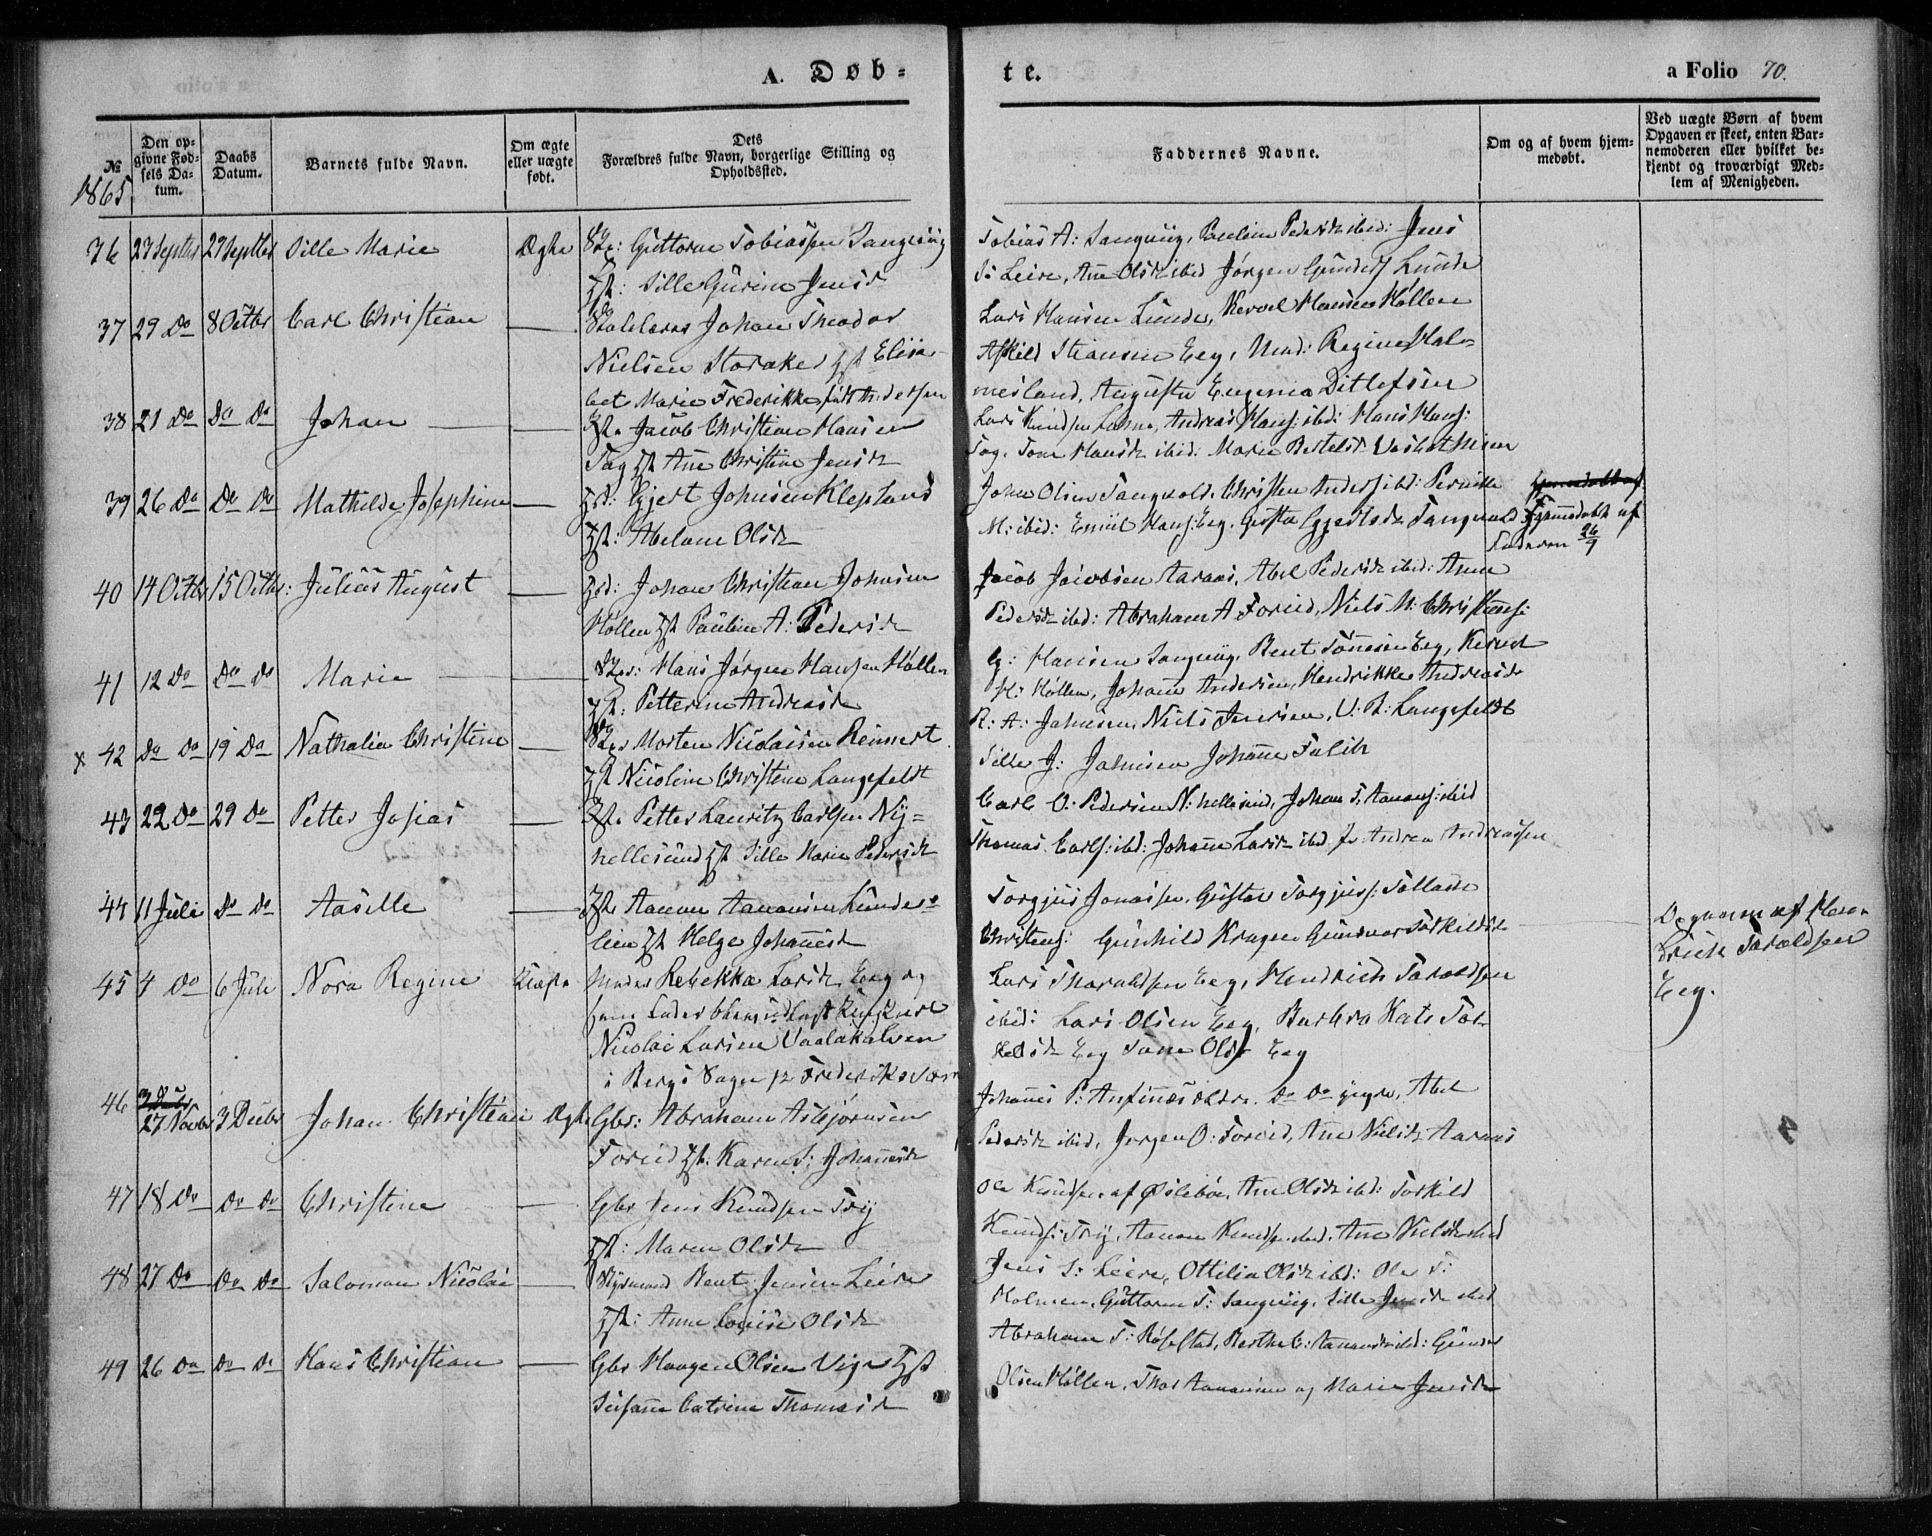 A. Døb-
te.
a Folio 70.
№
Den opgivne Fødsels Datum.
Daabs Datum.
Barnets fulde Navn.
Om ægte eller uægte født.
Dets Forældres fulde Navn, borgerlige Stilling og Opholdssted.
Faddernes Navne.
Om og af hvem hjemmedøbt.
Ved uægte Børn af hvem Opgaven er skeet, enten Barnemoderen eller hvilket bekjendt og troværdigt Medlem af Menigheden.
1865
36 23 Septbr 27 Septbr Sille Marie Ægte Guttorm Tobiassen Sangviig
Hst: Sille Gurine Jensd
Tobias A: Sangviig, Pauline Pedersd ibid: Jens
S: Leire, Ane Olsd ibid Jørgen Gunders Lunde
37 29 Do 8 Octbr Carl Christian — Johan Theodor
Nielsen Storaker Hst Elisa-
bet Marie Frederikke født Andersen
Lars Hansen Lunde, Hansen Høllen
Askild Stiansen Eeg, Mad: Regine Hal-
mesland, Augusta Eugenia Ditlefsen
38 21 Do Do Do Johan — Jacob Christian Hansen
Tag Hst Ane Christine Jensd
Lars Knudsen Lohne, Andreas Hans: ibid: Hans Hans:
Tag. Tone Hansd ibid: Marie Bertelsd
39 26 Do Do Do Mathilde Josephine — Gjert Johnsen Klepland
Hst: Abelone Olsd
John Olsen Tangvold, Christen Anders: ibid: Pernille
M: ibid: Emil Hans: Eeg. Tangvald
Hjemmedøbt af
Faderen 26/9
40 14 Octbr 15 Octbr: Julius August — Johan Christian Johnsen
Høllen Hst Pauline A: Pedersd
Jacob Jacobsen Aaraas, Abel Pedersd ibid: Anne
Pedersd ibid: Abraham A Foreid, Niels N: Christians:
41 12 Do Do Do Marie — Hans Jørgen Hansen Høllen
Hst: Petterine Andreasd
G: Hansen Sangviig, Bent Tönnesen Eeg,
H: Høllen, Johan Andersen, Hendrikke Andreasd
x 42 Do Do 19 Do Nathalia Christine — Morten Nicolaisen Reinert
Hst Nicoline Christine Langefeldt
R: A: Jahnsen, Niels Jensen, U. R: Langefeldt
Sille J: Jahnsen Johanne Falch
43 22 Do 29 Do Petter Josias — Petter Lauritz Carlsen Ny-
hellesund Hst Sille Marie Pedersd
Carl O: Pedersen N: hellesund, Johan T. Aanons: ibid
Thomas Carls: ibid: Johanne Larsd ibid Andrea Andreassen
44 11 Juli Do Do Aasille — Aanon Aanonsen Lunde-
lien Hst Helge Johannesd
Torgjus Jonassen, Gustav Torgjus:
Christens: Gunhild Gunvor Torkildsd
45 4 Do 6 Juli Nora Regine Uægte Moder Rebekka Larsd Eeg og
Nicolai Larsen
i Bergs Sogn pr Frederiksværn
Lars Tharaldsen Eeg, Hendrich Taraldsen
ibid: Lars Olsen Eeg, Barbro Kat: Tor-
kelsd Eeg Tone Olsd Eeg
Opgaven af
Erich Taraldsen
Eeg.
46 27 Novbr 3 Decbr Johan Christian Ægte Gbr: Abraham Asbjørnsen
Foreid Hst: Karen S: Johannesd
Johannes P: Do Do Abel
Pedersd ibid, Jørgen O: Foreid, Ane Nielsd Aaraas
47 18 Do Do Do Christine — Gbr Jens Knudsen Try
Hst: Maren Olsd
Ole Knudsen af Øslebø, Ane Olsd ibid: Torkild
Knuds: Try, Aanon Knudsen ibid, Ane Nielsd ibid
48 27 Do Do Do Salomon Nicolai — Bent Jensen Leire
Hst: Anne Louise Olsd
Jens S: Leire, Ottilia Olsd ibid: Ole T:
Holmen, Guttorm T: Sangviig, Sille Jensd ibid
49 26 Do Do Do Hans Christian — Gbr Haagen Olsen Vige Hst
Susanne Catrine Thomasd
Abraham T: Røsstad, Berthe C: Aanonsd ibid: Gunder
Olsen Høllen, Thor Aanonsen og Maren Jensd